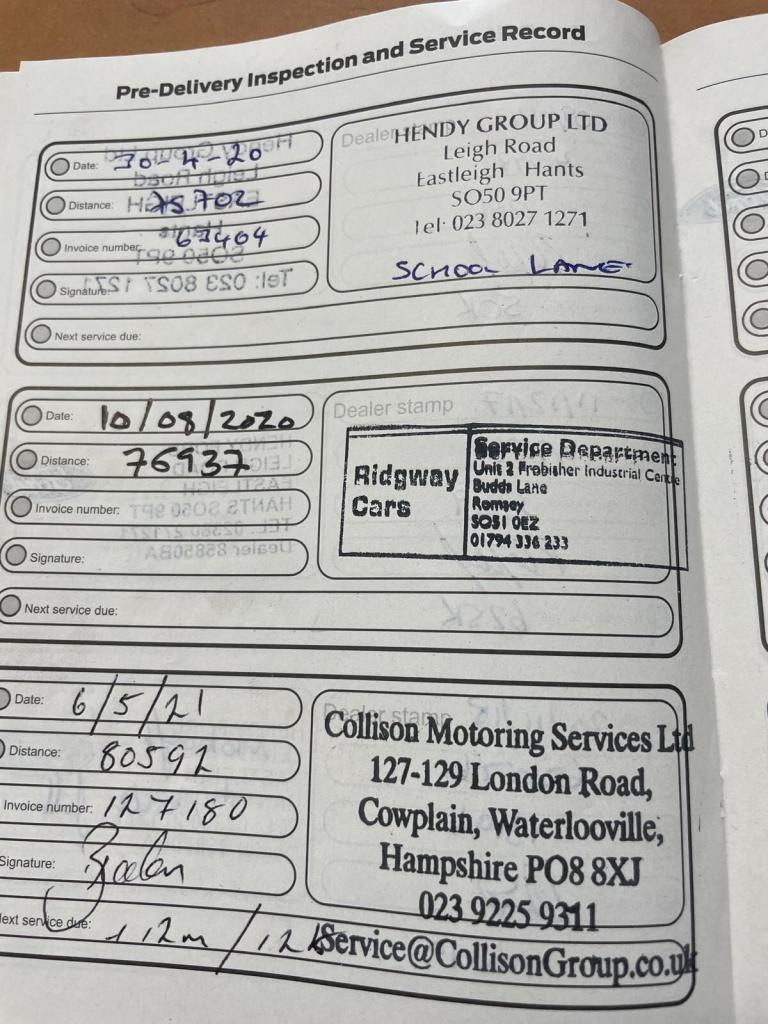 Pre-Delivery Inspection and Service Record
Date: 30-4-20
Distance: 75702
Invoice number:
Signature:
Next service due:
Dealer stamp
HENDY GROUP LTD
Leigh Road
Eastleigh Hants
SO50 9PT
Tel: 023 8027 1271
SCHOOL LANE
Date: 10/08/2020
Distance: 76937
Invoice number:
Signature:
Next service due:
Dealer stamp
Ridgway
Cars
Service Department
Unit 2 Frobisher Industrial Centre
Budds Lane
Romsey
SO51 0EZ
01794 336 233
Date: 6/5/21
Distance: 80592
Invoice number: 127180
Signature:
Next service due: 12m / 12k
Dealer stamp
Collison Motoring Services Ltd
127-129 London Road,
Cowplain, Waterlooville,
Hampshire PO8 8XJ
023 9225 9311
Service@CollisonGroup.co.uk